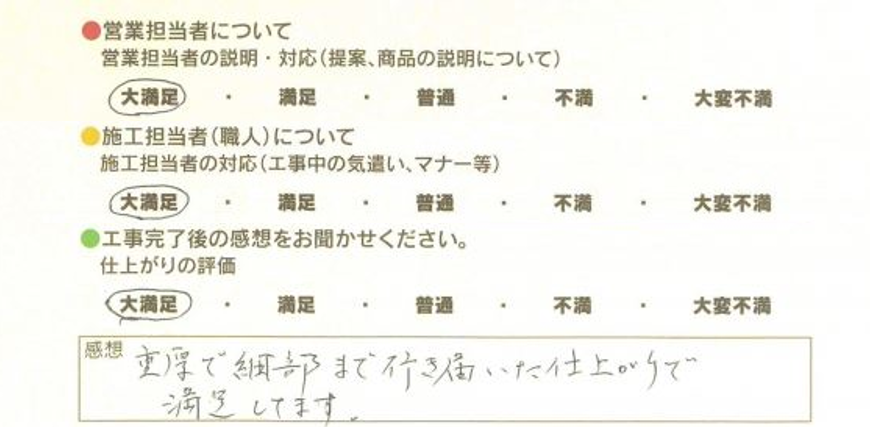 ●営業担当者について
営業担当者の説明・対応(提案、商品の説明について)
大満足 ・ 満足 ・ 普通 ・ 不満 ・ 大変不満
●施工担当者(職人)について
施工担当者の対応(工事中の気遣い、マナー等)
大満足 ・ 満足 ・ 普通 ・ 不満 ・ 大変不満
●工事完了後の感想をお聞かせください。
仕上がりの評価
大満足 ・ 満足 ・ 普通 ・ 不満 ・ 大変不満
感想
重厚で細部まで行き届いた仕上がりで
満足してます。